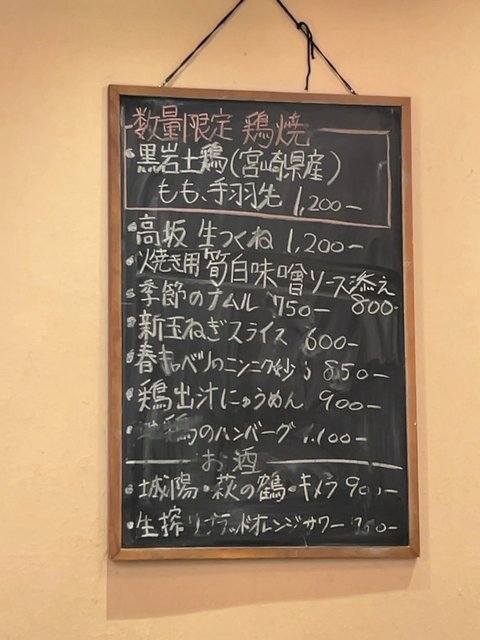 数量限定 鶏焼
・黒岩土鶏(宮崎県産)
もも、手羽先 1,200-
・高坂 生つくね 1,200-
・焼き用 筍白味噌ソース添え
800-
・季節のナムル 750-
・新玉ねぎスライス 600-
・春キャベツのニンニク炒め 850-
・鶏出汁にゅうめん 900-
鶏のハンバーグ 1.100-
お酒
・城陽・萩の鶴・キメラ
・生搾りブラッドオレンジサワー 750-